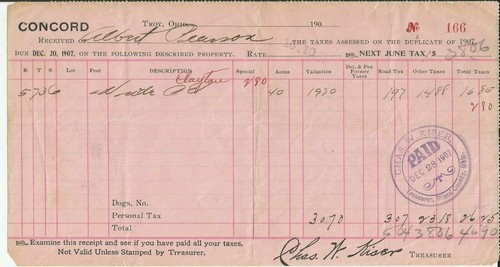 CONCORD TROY, OHIO, 190 No. 166
RECEIVED OF Albert Pearson THE TAXES ASSESSED ON THE DUPLICATE OF 1907
DUE DEC. 20, 1907, ON THE FOLLOWING DESCRIBED PROPERTY. RATE NEXT JUNE TAX, $ 38.06
R T S Lot Feet DESCRIPTION Special Acres Valuation Del. & Pen Former Years Road Tax Other Taxes Total Taxes
Clayton 290
5 7 36 40 1970 197 1488 1685
290
CHAS. W. KISER,
PAID
DEC 28 1907
Treasurer, Miami County, Ohio.
Dogs, No.
Personal Tax 3070 307 2318 2625
Total 504 3806 4690
Examine this receipt and see if you have paid all your taxes.
Not Valid Unless Stamped by Treasurer.
Chas. W. Kiser TREASURER